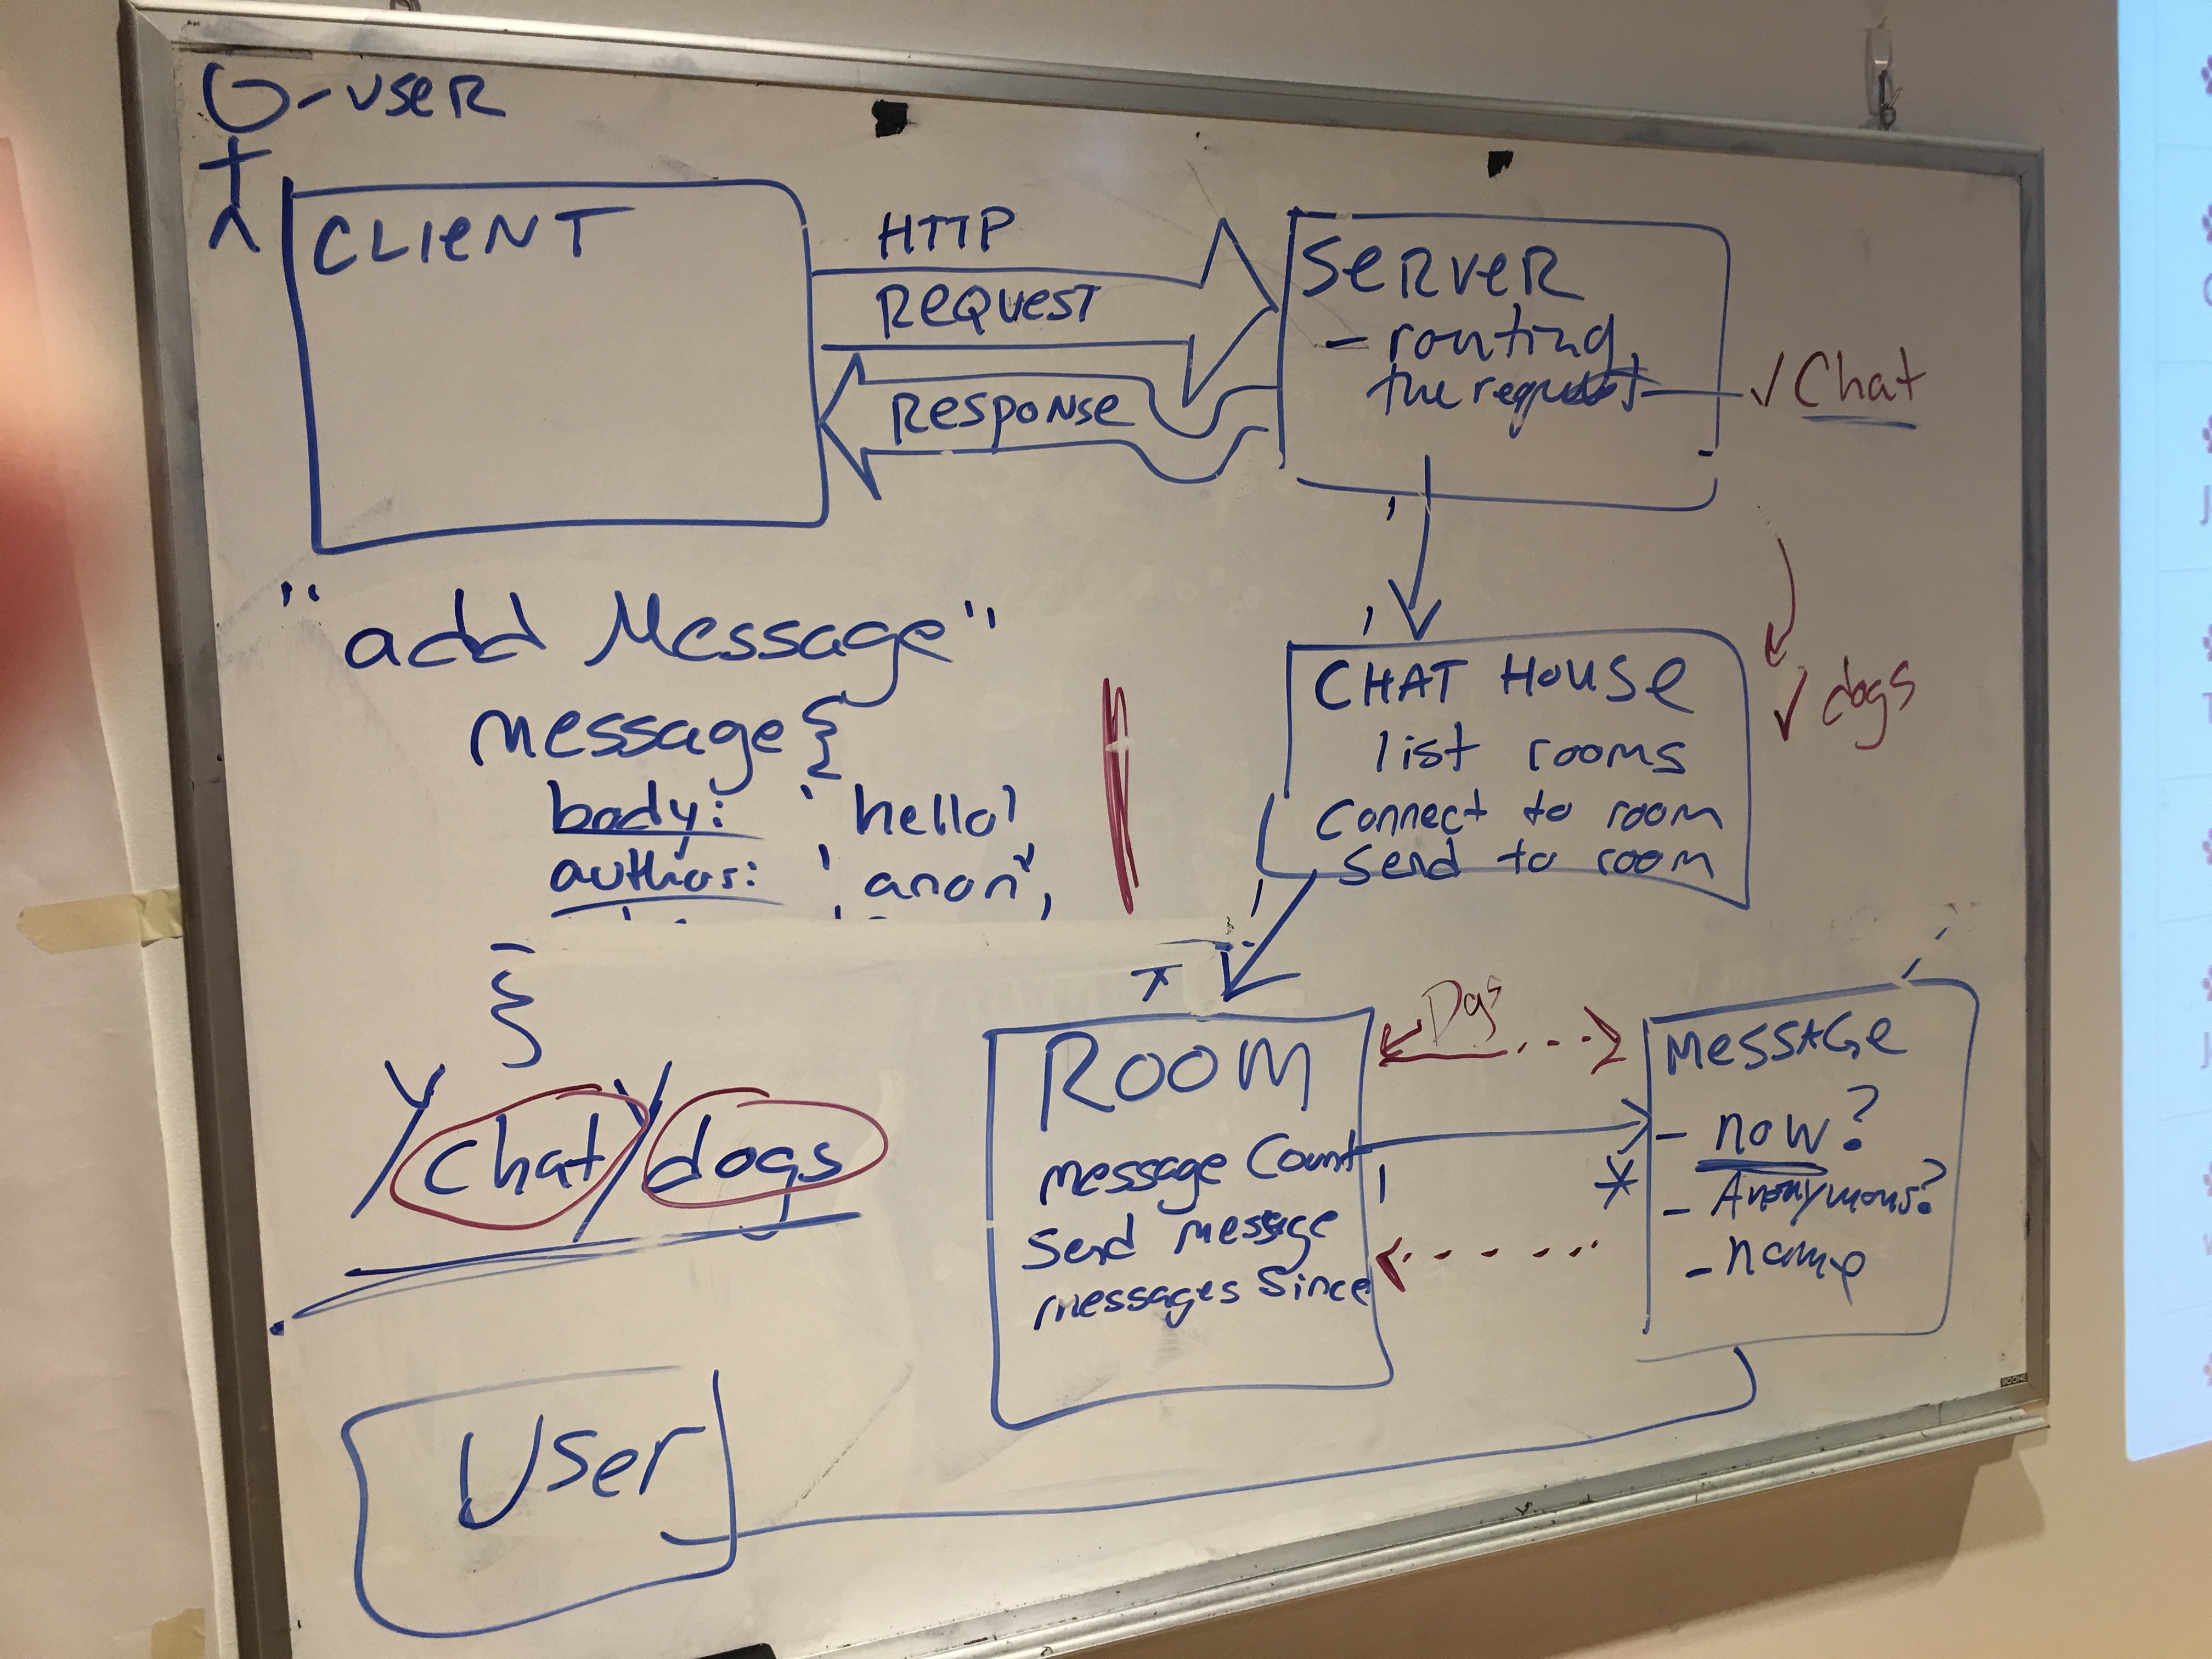 USER
CLIENT
HTTP
REQUEST
RESPONSE
SERVER
- routing
the request
✓ Chat
"add Message"
message {
body: 'hello'
author: 'anon',
}
CHAT HOUSE
list rooms
Connect to room
Send to room
✓ dogs
/chat/dogs
ROOM
message Count
Send message
messages Since
Dgs
1
*
MESSAGE
- now?
- Anonymous?
- name
User